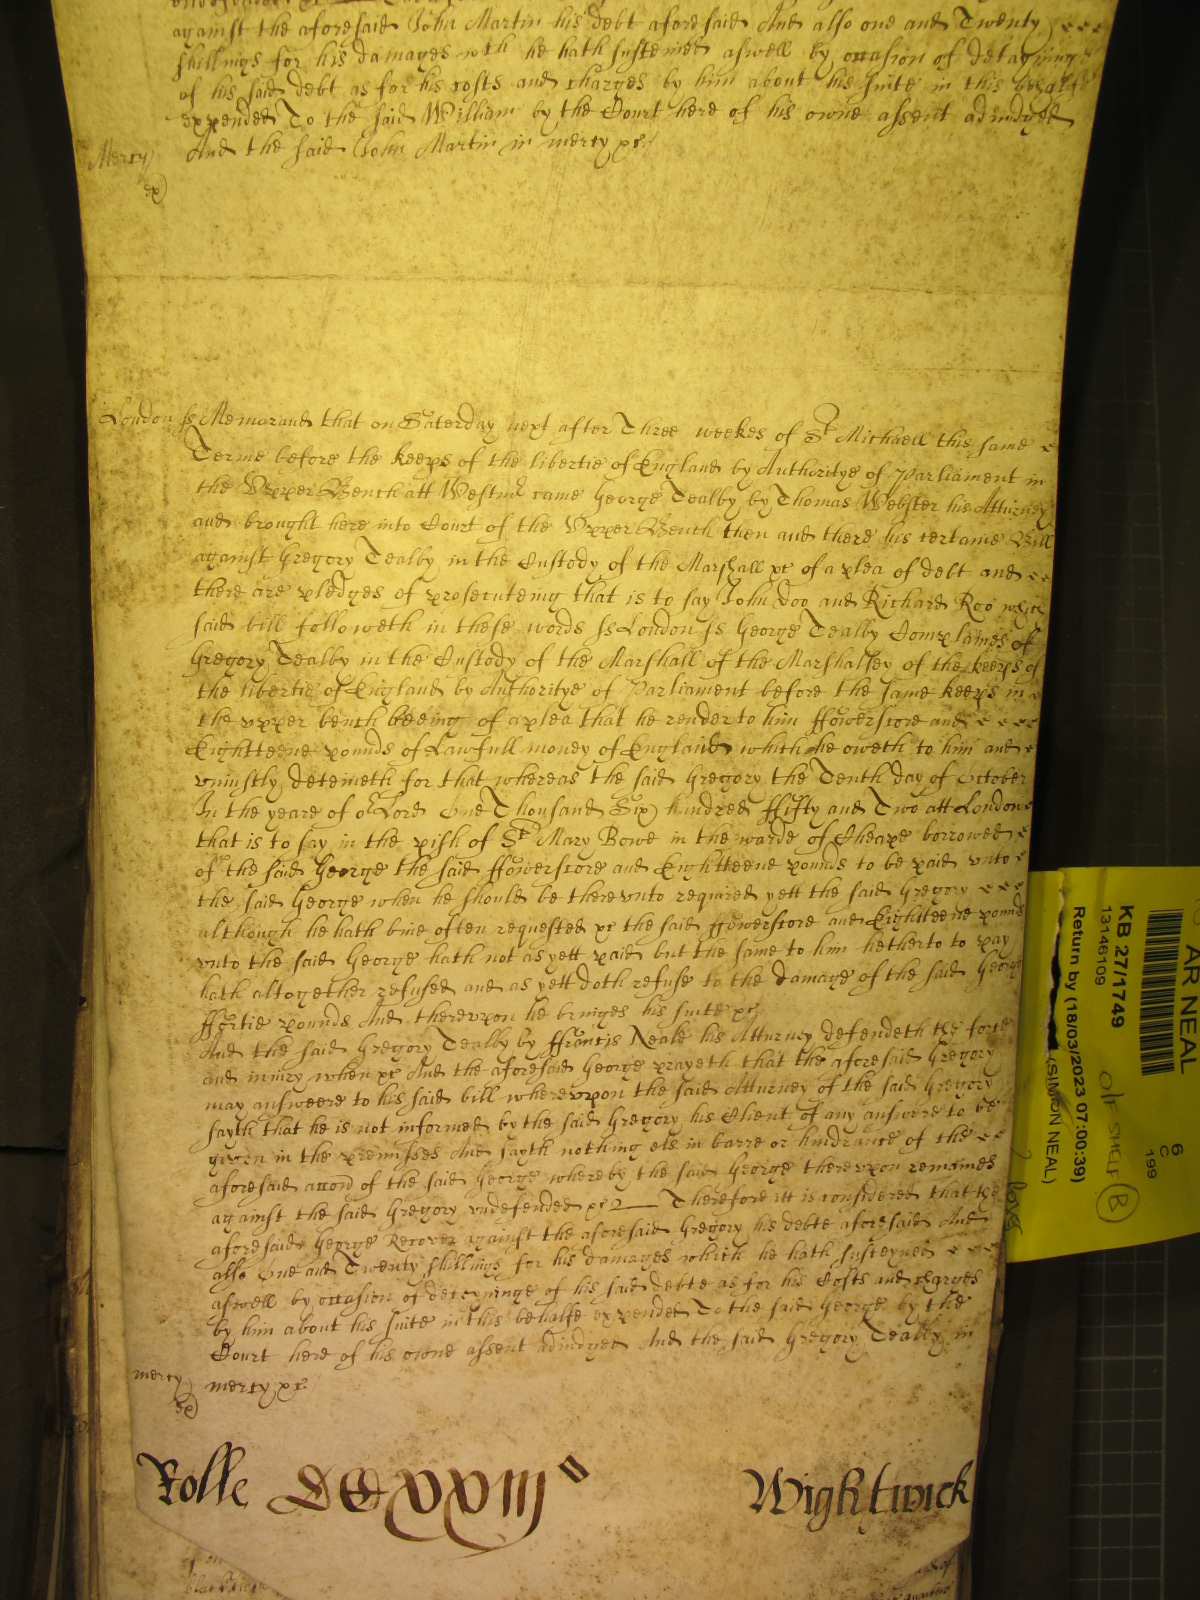 against the aforesaid John Martin his debt aforesaid And also one and Twenty
shillings for his damages wch he hath susteined aswell by occasion of detayninge
of his said debt as for his costs and charges by him about his suite in this behalfe
expended To the said William by the Court here of his owne assent adiudged
Mercy And the said John Martin in mercy &c
London ss Memorand that on Saterday next after Three weekes of St Michaell this same
Terme before the keeps of the libertie of England by Authoritye of Parliament in
the Vpper Bench att Westmr came George Tealby by Thomas Webster his Atturney
and brought here into Court of the Vpper Bench then and there his certaine Bill
against Gregory Tealby in the Custody of the Marshall &c of a plea of debt and
there are pledges of prosecuteing that is to say John Doo and Richard Roo which
said bill followeth in these words ss London ss George Tealby Complaines of
Gregory Tealby in the Custody of the Marshall of the Marshalsey of the keeps of
the libertie of England by Authoritye of Parliament before the same keeps in
the vpper bench beeing of a plea that he render to him ffowerscore and
Eightteene pounds of Lawfull money of England which he oweth to him and
vniustly deteineth for that whereas the said Gregory the Tenth day of October
In the yeare of or Lord One Thousand Six hundred ffifty and Two att London
that is to say in the pish of St Mary Bowe in the warde of Cheape borrowed
of the said George the said ffowerscore and Eightteene pounds to be paid vnto
the said George when he should be therevnto required yett the said Gregory
although he hath bine often requested &c the said ffowerscore and Eightteene pounds
vnto the said George hath not as yett paid but the same to him hetherto to pay
hath altogether refused and as yett doth refuse to the damage of the said George
ffortie pounds And therevpon he bringes his suite &c
And the said Gregory Tealby by ffrancis Neale his Atturney defendeth the force
and iniury when &c And the aforesaid George prayeth that the aforesaid Gregory
may answeere to his said bill wherevpon the said Atturney of the said Gregory
sayth that he is not informed by the said Gregory his Client of any answere to be
given in the premisses And sayth nothing els in barre or hindrance of the
aforesaid accon of the said George whereby the said George therevpon remaines
against the said Gregory vndefended &c Therefore itt is considered that the
aforesaid George Recover against the aforesaid Gregory his debte aforesaid And
also One and Twenty shillings for his damages which he hath susteyned
aswell by occasion of deteyninge of his said debte as for his Costs and charges
by him about his suite in this behalfe expended To the said George by the
Court here of his owne assent adiudged And the said Gregory Tealby in
mercy mercy &c
Rolle DCXXIII
Wightwick
AR NEAL
KB 27/1749
13146109
Return by (18/03/2023 07:00:39)
(SIMON NEAL)
6
C
199
B